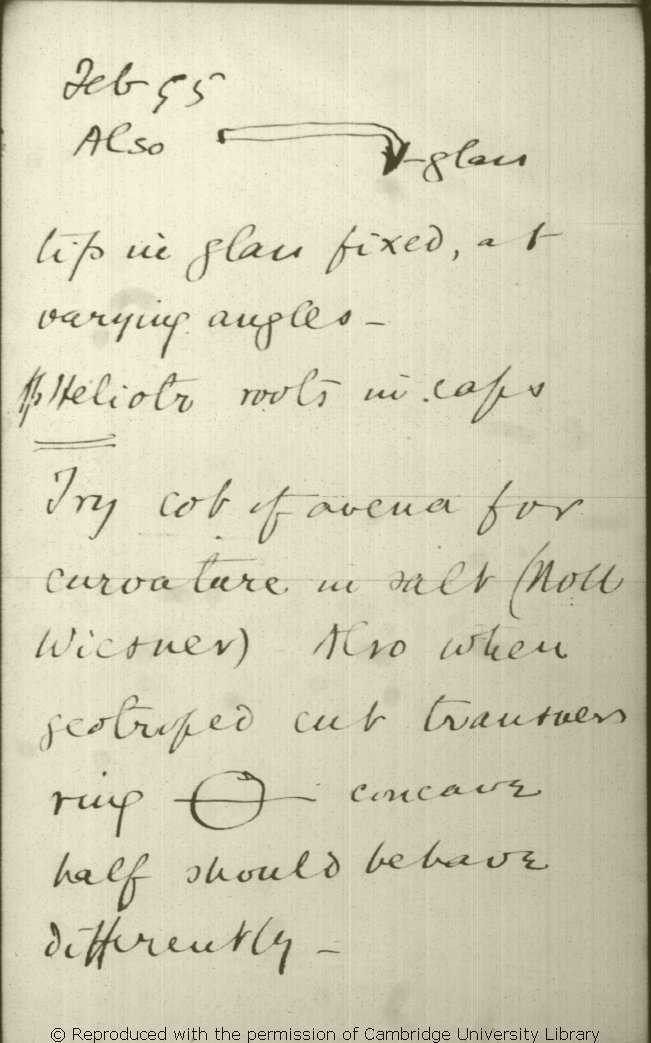 Feb 95
Also glass
tip in glass fixed, at
varying angles –
Heliotr roots in caps
Try cot of avena for
curvature in salt (Noll
Wiesner) Also when
geotroped cut transvers
ring concave
half should behave
differently –
© Reproduced with the permission of Cambridge University Library